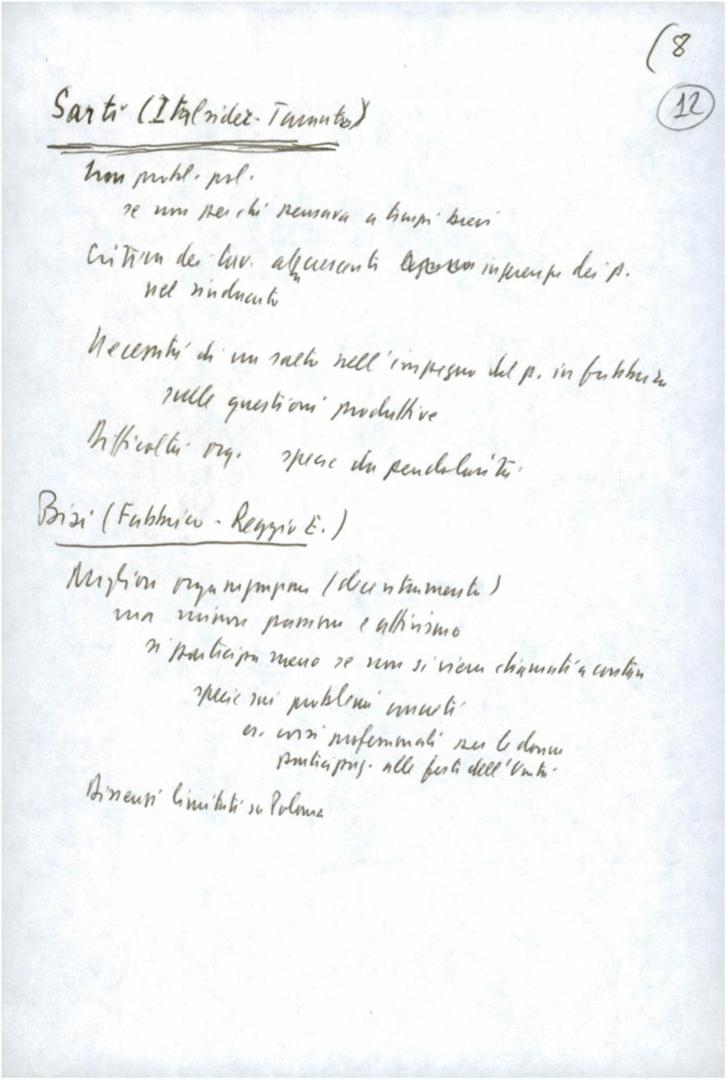 (8
12
Sarti (Italsider - Taranto)
Non probl. pol.
se non per chi pensava a tempi brevi
Critica dei lav. all' ingerenza dei p.
nel sindacato
Necessità di un salto nell'impegno del p. in fabbrica
sulle questioni produttive
Difficoltà org. specie da pendolarità
Bisi (Fabbrico - Reggio E.)
Migliore organizzazione (decentramento)
ma minore passione e attivismo
si partecipa meno se non si viene chiamati a contare
specie sui problemi concreti
es. corsi professionali per le donne
partecipaz. alle feste dell'Unità
Dissensi limitati su Polonia